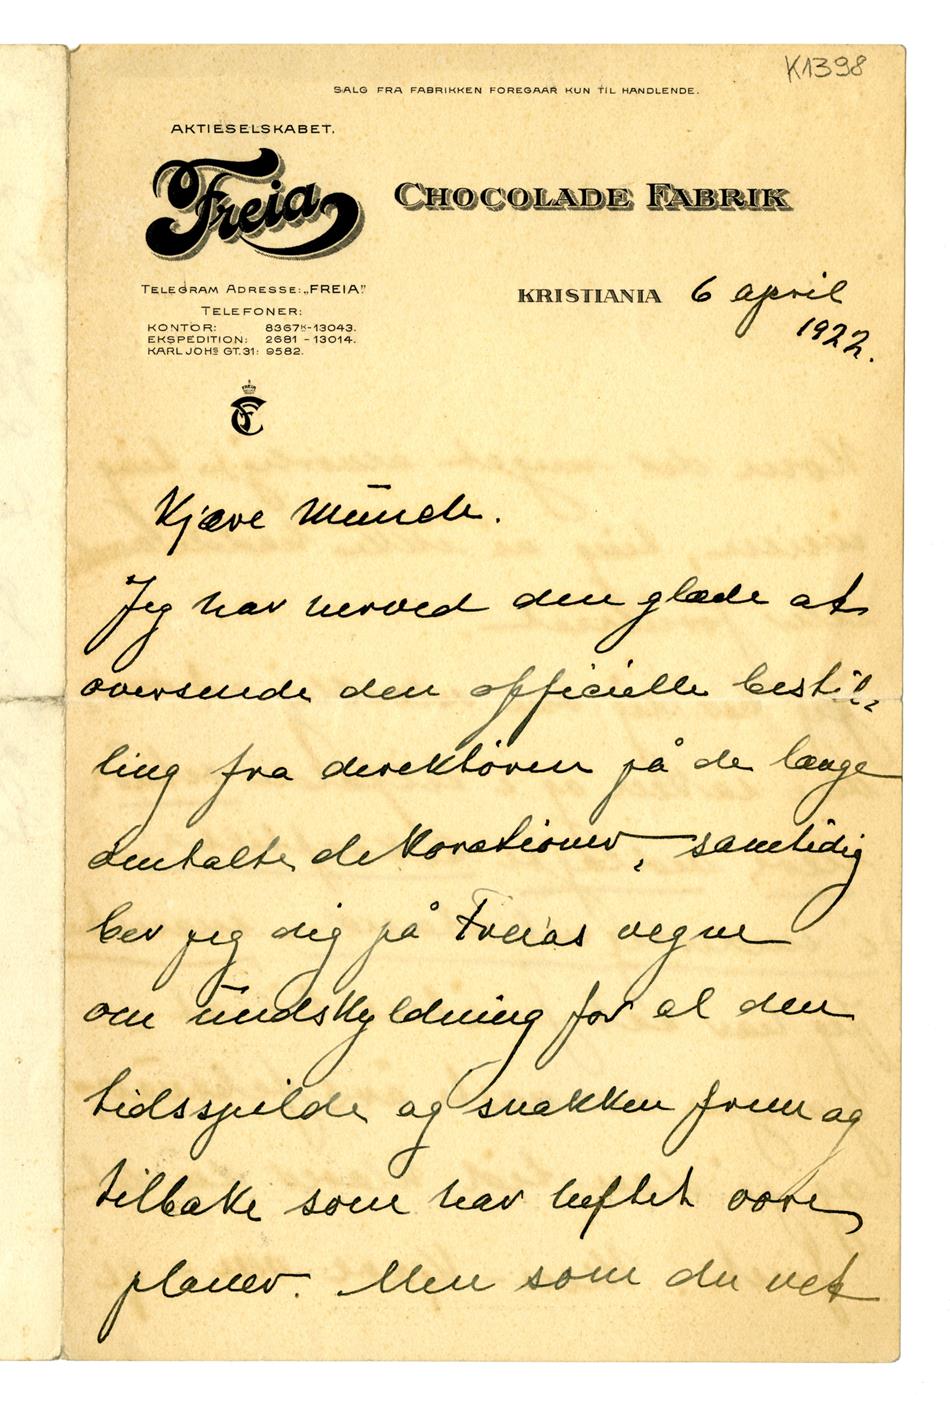 K1398
SALG FRA FABRIKKEN FOREGAAR KUN TIL HANDLENDE.
AKTIESELSKABET.
Freia CHOCOLADE FABRIK
TELEGRAM ADRESSE: „FREIA"
TELEFONER:
KONTOR: 8367ᴷ-13043.
EKSPEDITION: 2681 - 13014.
KARL JOHS GT. 31: 9582.
FREIA
KRISTIANIA 6 april
1922.
Kjære Munch.
Jeg har herved den glæde at
oversende den officielle bestil-
ling fra direktören på de længe
omtalte dekorationer, – samtidig
ber jeg dig på Freias vegne
om undskyldning for al den
tidsspilde og snakken frem og
tilbake som har heftet vore
planer. Men som du vet